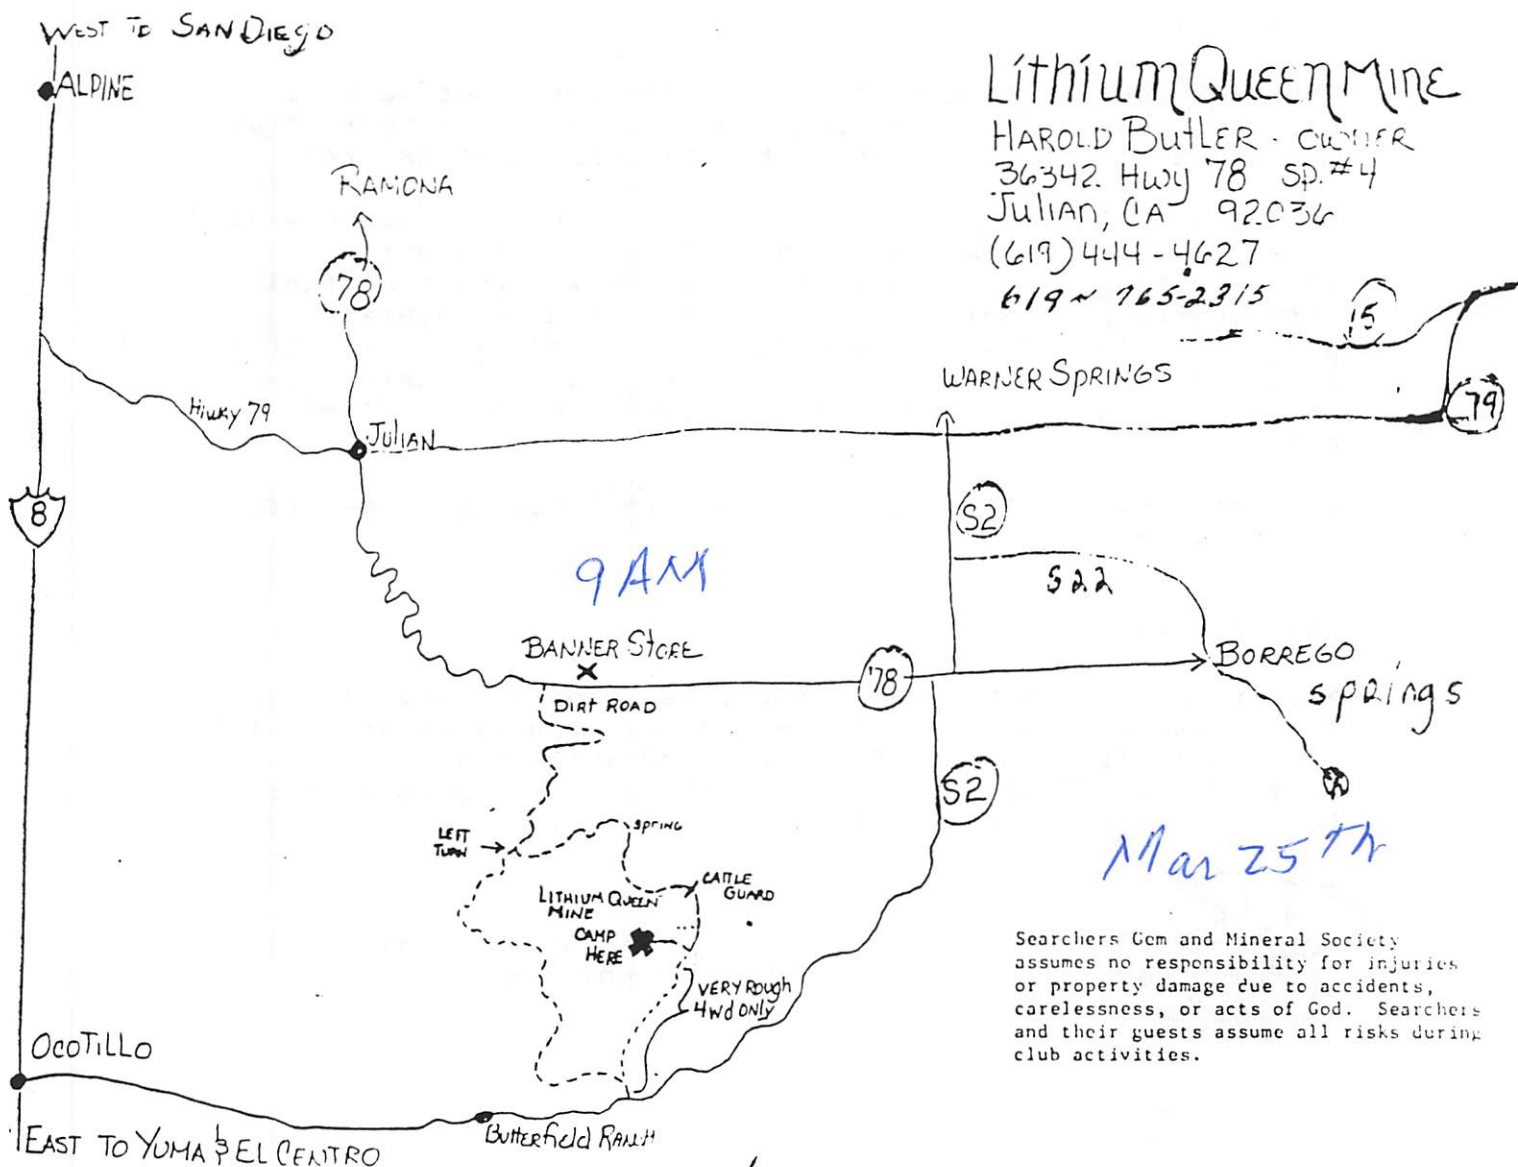 WEST TO SAN DIEGO
ALPINE
Lithium Queen Mine
HAROLD BUTLER - OWNER
36342 Hwy 78 SP.#4
Julian, CA 92036
(619) 444-4627
619 ~ 765-2315
RAMONA
78
15
WARNER SPRINGS
79
Hiwky 79
JULIAN
8
S2
S22
9 AM
BANNER STORE
78
BORREGO
Springs
DIRT ROAD
S2
LEFT
TURN
SPRING
CATTLE
GUARD
LITHIUM QUEEN
MINE
CAMP
HERE
VERY ROUGH
4WD ONLY
Mar 25th
Searchers Gem and Mineral Society
assumes no responsibility for injuries
or property damage due to accidents,
carelessness, or acts of God. Searchers
and their guests assume all risks during
club activities.
OCOTILLO
Butterfield RANCH
EAST TO YUMA & EL CENTRO